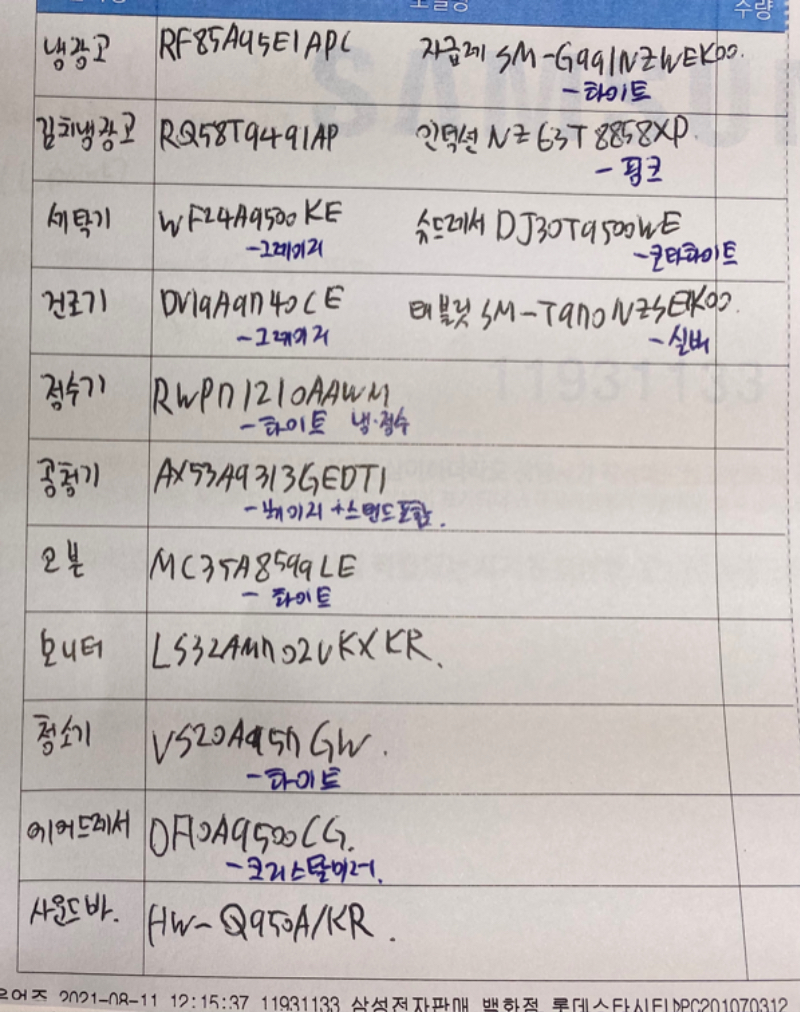 모델명 수량
냉장고 RF85A95E1APC 자급제 SM-G991NZWEK00.
-화이트
김치냉장고 RQ58T9491AP 인덕션 NZ63T8858XP.
-핑크
세탁기 WF24A9500KE 슈드레서 DJ30T9500WE
-그레이지 -코타화이트
건조기 DV19A9740CE 태블릿 SM-T970NZSEK00.
-그레이지 -실버
정수기 RWP71210AAWM
-화이트 냉·정수
공청기 AX53A9313GEDT1
-베이지+스탠드포함.
오븐 MC35A8599LE
-화이트
모니터 LS32AM702UKXKR.
청소기 VS20A957GW.
-화이트
에어드레서 DF10A9500CG.
-크리스탈미러.
사운드바. HW-Q950A/KR.
2021-08-11 12:15:37 11931133 삼성전자판매 백화점 롯데스타시티
SAMSU
11931133